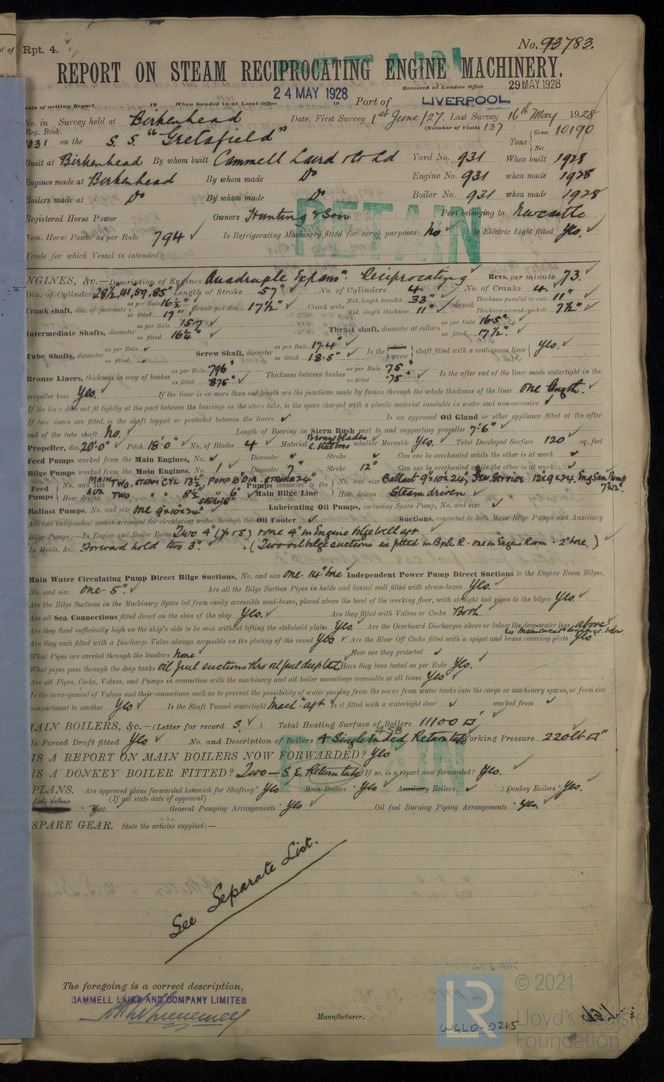 Rpt. 4.
No. 93783.
REPORT ON STEAM RECIPROCATING ENGINE MACHINERY.
Received at London Office 29 MAY 1928
24 MAY 1928
Date of writing Report 19 When handed in at Local Office 19 Port of LIVERPOOL
No. in Survey held at Birkenhead Date, First Survey 1st June/27 Last Survey 16th May 1928
Reg. Book. (Number of Visits 137)
on the S.S. "Gretafield" Tons Gross 10190 Net
Built at Birkenhead By whom built Cammell Laird & Co Ld Yard No. 931 When built 1928
Engines made at Birkenhead By whom made Do Engine No. 931 when made 1928
Boilers made at Do By whom made Do Boiler No. 931 when made 1928
Registered Horse Power Owners Hunting & Son Port belonging to Newcastle
Nom. Horse Power as per Rule 794 Is Refrigerating Machinery fitted for cargo purposes No Is Electric Light fitted Yes.
Trade for which Vessel is intended
RETAIN
ENGINES, &c.—Description of Engines Quadruple Expansn. Reciprocating Revs. per minute 73.
Dia. of Cylinders 28½, 41, 59, 85" Length of Stroke 57" No. of Cylinders 4 No. of Cranks 4
Crank shaft, dia. of journals as per Rule 16½" as fitted 17" Crank pin dia. 17½" Crank webs Mid. length breadth 33" Mid. length thickness 11" shrunk Thickness parallel to axis 11" Thickness around eyehole 7½"
Intermediate Shafts, diameter as per Rule 15.7 as fitted 16¼" Thrust shaft, diameter at collars as per Rule 16.5" as fitted 17½"
Tube Shafts, diameter as per Rule as fitted Screw Shaft, diameter as per Rule 17.4" as fitted 18.5" Is the screw shaft fitted with a continuous liner Yes.
Bronze Liners, thickness in way of bushes as per Rule .796" as fitted .875" Thickness between bushes as per Rule .75" as fitted .75" Is the after end of the liner made watertight in the
propeller boss Yes. If the liner is in more than one length are the junctions made by fusion through the whole thickness of the liner One length.
If the liner does not fit tightly at the part between the bearings in the stern tube, is the space charged with a plastic material insoluble in water and non-corrosive
If two liners are fitted, is the shaft lapped or protected between the liners Is an approved Oil Gland or other appliance fitted at the after
end of the tube shaft No. Length of Bearing in Stern Bush next to and supporting propeller 7'-6"
Propeller, dia. 20'-0" Pitch 18'-0" No. of Blades 4 Material Bronze blades whether Moveable Yes. Total Developed Surface 120 sq. feet
Feed Pumps worked from the Main Engines, No. Diameter Stroke Can one be overhauled while the other is at work
Bilge Pumps worked from the Main Engines, No. 1 Diameter 7" Stroke 12" Can one be overhauled while the other is at work
Feed Pumps No. and size Main Two, Steam Cyl 13½" Pump 10" Dia. Stroke 24" Aux Two Pumps connected to the Main Bilge Line No. and size Ballast 9"x10"x24" How driven Steam driven
Ballast Pumps, No. and size One 9"x10"x24" Lubricating Oil Pumps, including Spare Pump, No. and size
Are two independent means arranged for circulating water through the Oil Cooler Suctions, connected to both Main Bilge Pumps and Auxiliary
Bilge Pumps;—In Engine and Boiler Room Two 4" (P&S) & one 4" in Engine bilge well aft
In Holds, &c. Forward hold two 3". (Two oil bilge suctions as fitted in Boiler R. - one in Engine Room - 2" bore)
Main Water Circulating Pump Direct Bilge Suctions, No. and size One - 14" bore Independent Power Pump Direct Suctions to the Engine Room Bilges,
No. and size One - 5". Are all the Bilge Suction Pipes in holds and tunnel well fitted with strum-boxes Yes.
Are the Bilge Suctions in the Machinery Space led from easily accessible mud-boxes, placed above the level of the working floor, with straight tail pipes to the bilges Yes.
Are all Sea Connections fitted direct on the skin of the ship Yes. Are they fitted with Valves or Cocks Both
Are they fixed sufficiently high on the ship's side to be seen without lifting the stokehold plates Yes Are the Overboard Discharges above or below the deep water line above
Are they each fitted with a Discharge Valve always accessible on the plating of the vessel Yes Are the Blow Off Cocks fitted with a spigot and brass covering plate Yes
What Pipes are carried through the bunkers None How are they protected
What pipes pass through the deep tanks Oil fuel suctions thro oil fuel deep tk Have they been tested as per Rule Yes.
Are all Pipes, Cocks, Valves, and Pumps in connection with the machinery and all boiler mountings accessible at all times Yes
Is the arrangement of Valves and their connections such as to prevent the possibility of water passing from the sea or from water tanks into the cargo or machinery spaces, or from one
compartment to another Yes Is the Shaft Tunnel watertight Machy aft Is it fitted with a watertight door worked from
MAIN BOILERS, &c.—(Letter for record S.) Total Heating Surface of Boilers 11100 □'
Is Forced Draft fitted Yes No. and Description of Boilers 4 Single Ended Return tube Working Pressure 220 lb □"
IS A REPORT ON MAIN BOILERS NOW FORWARDED? Yes
IS A DONKEY BOILER FITTED? Two - S.E. Return tube If so, is a report now forwarded? Yes.
PLANS. Are approved plans forwarded herewith for Shafting Yes Main Boilers Yes Auxiliary Boilers Donkey Boilers Yes.
(If not state date of approval)
Yes. General Pumping Arrangements Yes Oil fuel Burning Piping Arrangements Yes
RETAIN
SPARE GEAR. State the articles supplied:—
See Separate List.
The foregoing is a correct description,
CAMMELL LAIRD AND COMPANY LIMITED
Manufacturer.
LR
© 2021
Lloyd's Register
Foundation
W440-0215